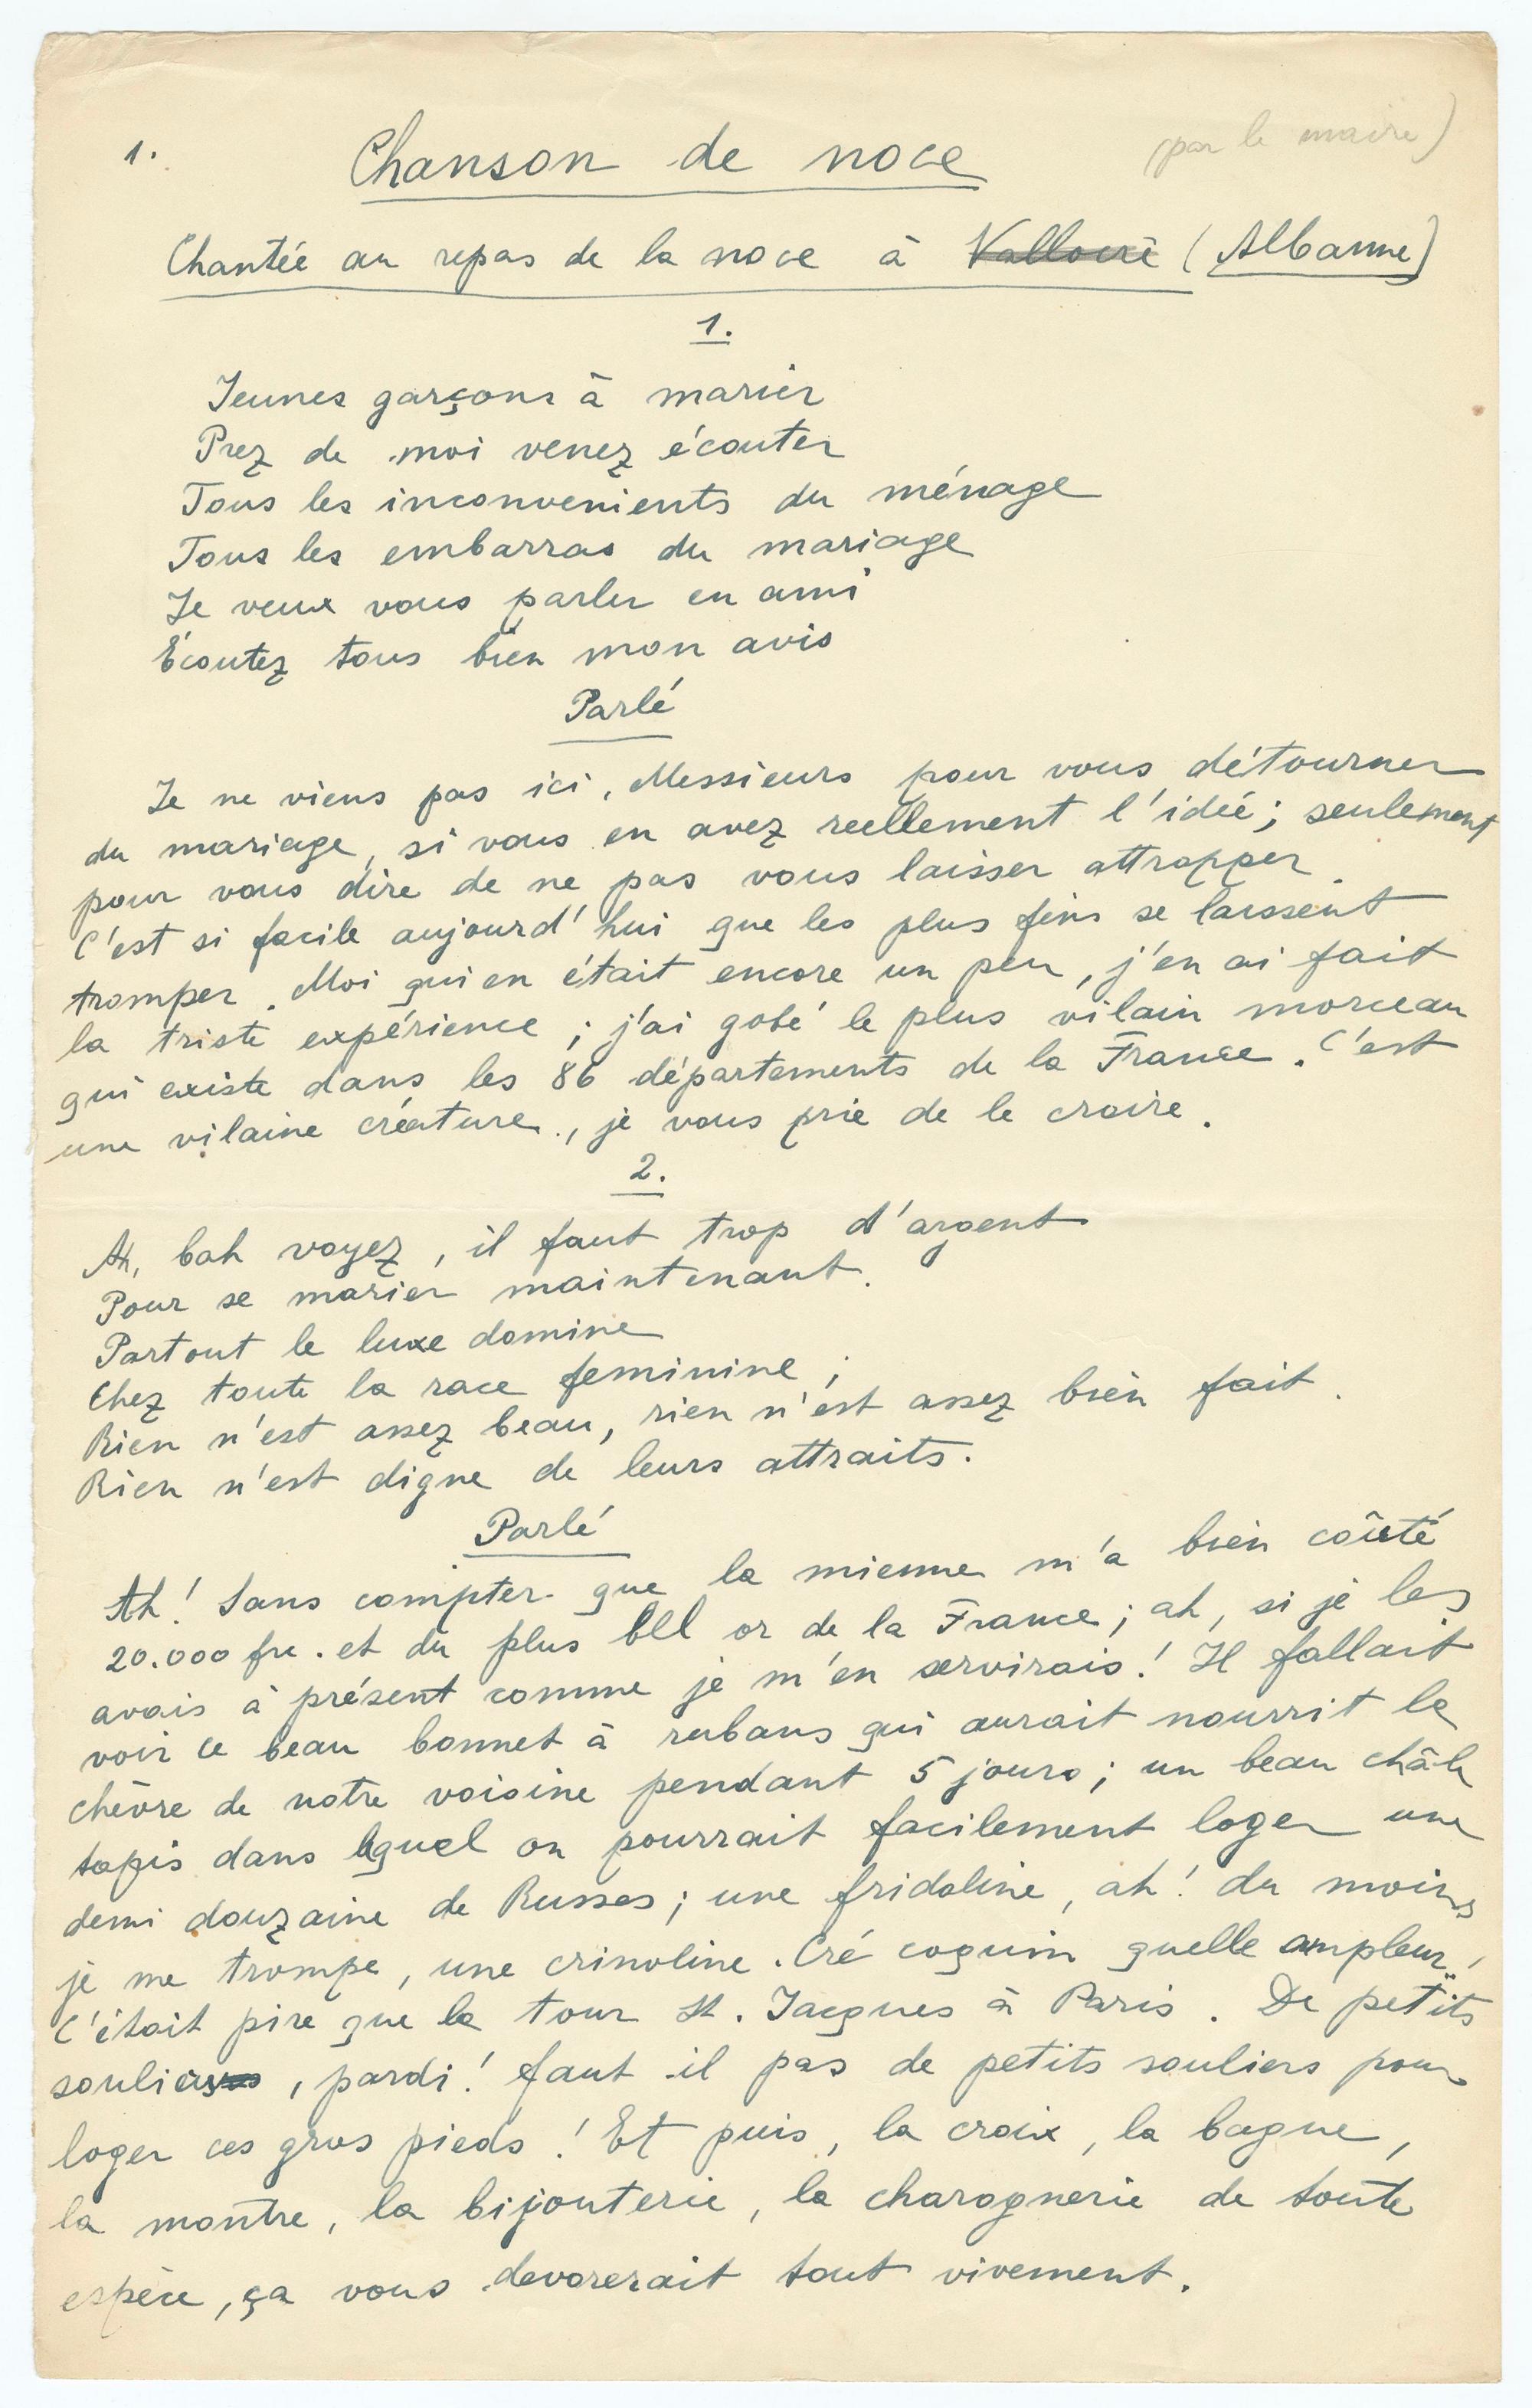 1. Chanson de noce (par le maire)
Chantée au repas de la noce à Valloire (Albanne)
1.
Jeunes garçons à marier
Prez de moi venez écouter
Tous les inconvenients du ménage
Tous les embarras du mariage
Je veux vous parler en ami
Écoutez tous bien mon avis
Parlé
Je ne viens pas ici, Messieurs pour vous détourner
du mariage, si vous en avez reellement l'idée; seulement
pour vous dire de ne pas vous laisser attrapper.
C'est si facile aujourd'hui que les plus fins se laissent
tromper. Moi qui en était encore un peu, j'en ai fait
la triste expérience; j'ai gobé le plus vilain morceau
qui existe dans les 86 départements de la France. C'est
une vilaine créature, je vous prie de le croire.
2.
Ah, bah voyez, il faut trop d'argent
Pour se marier maintenant.
Partout le luxe domine
Chez toute la race feminine;
Rien n'est assez beau, rien n'est assez bien fait.
Rien n'est digne de leurs attraits.
Parlé
Ah! Sans compter que la mienne m'a bien coûté
20.000 frs. et du plus bel or de la France; ah, si je les
avais à présent comme je m'en servirais! Il fallait
voir ce beau bonnet à rubans qui aurait nourrit la
chèvre de notre voisine pendant 5 jours; un beau châle
tapis dans lequel on pourrait facilement loger une
demi douzaine de Russes; une fridoline, ah! du moins
je me trompe, une crinoline. Cré coquin quelle ampleur!
C'était pire que la tour St. Jacques à Paris. De petits
souliers, pardi! faut-il pas de petits souliers pour
loger ces gros pieds! Et puis, la croix, la bague,
la montre, la bijouterie, la charognerie de toute
espèce, ça vous devorerait tout vivement.